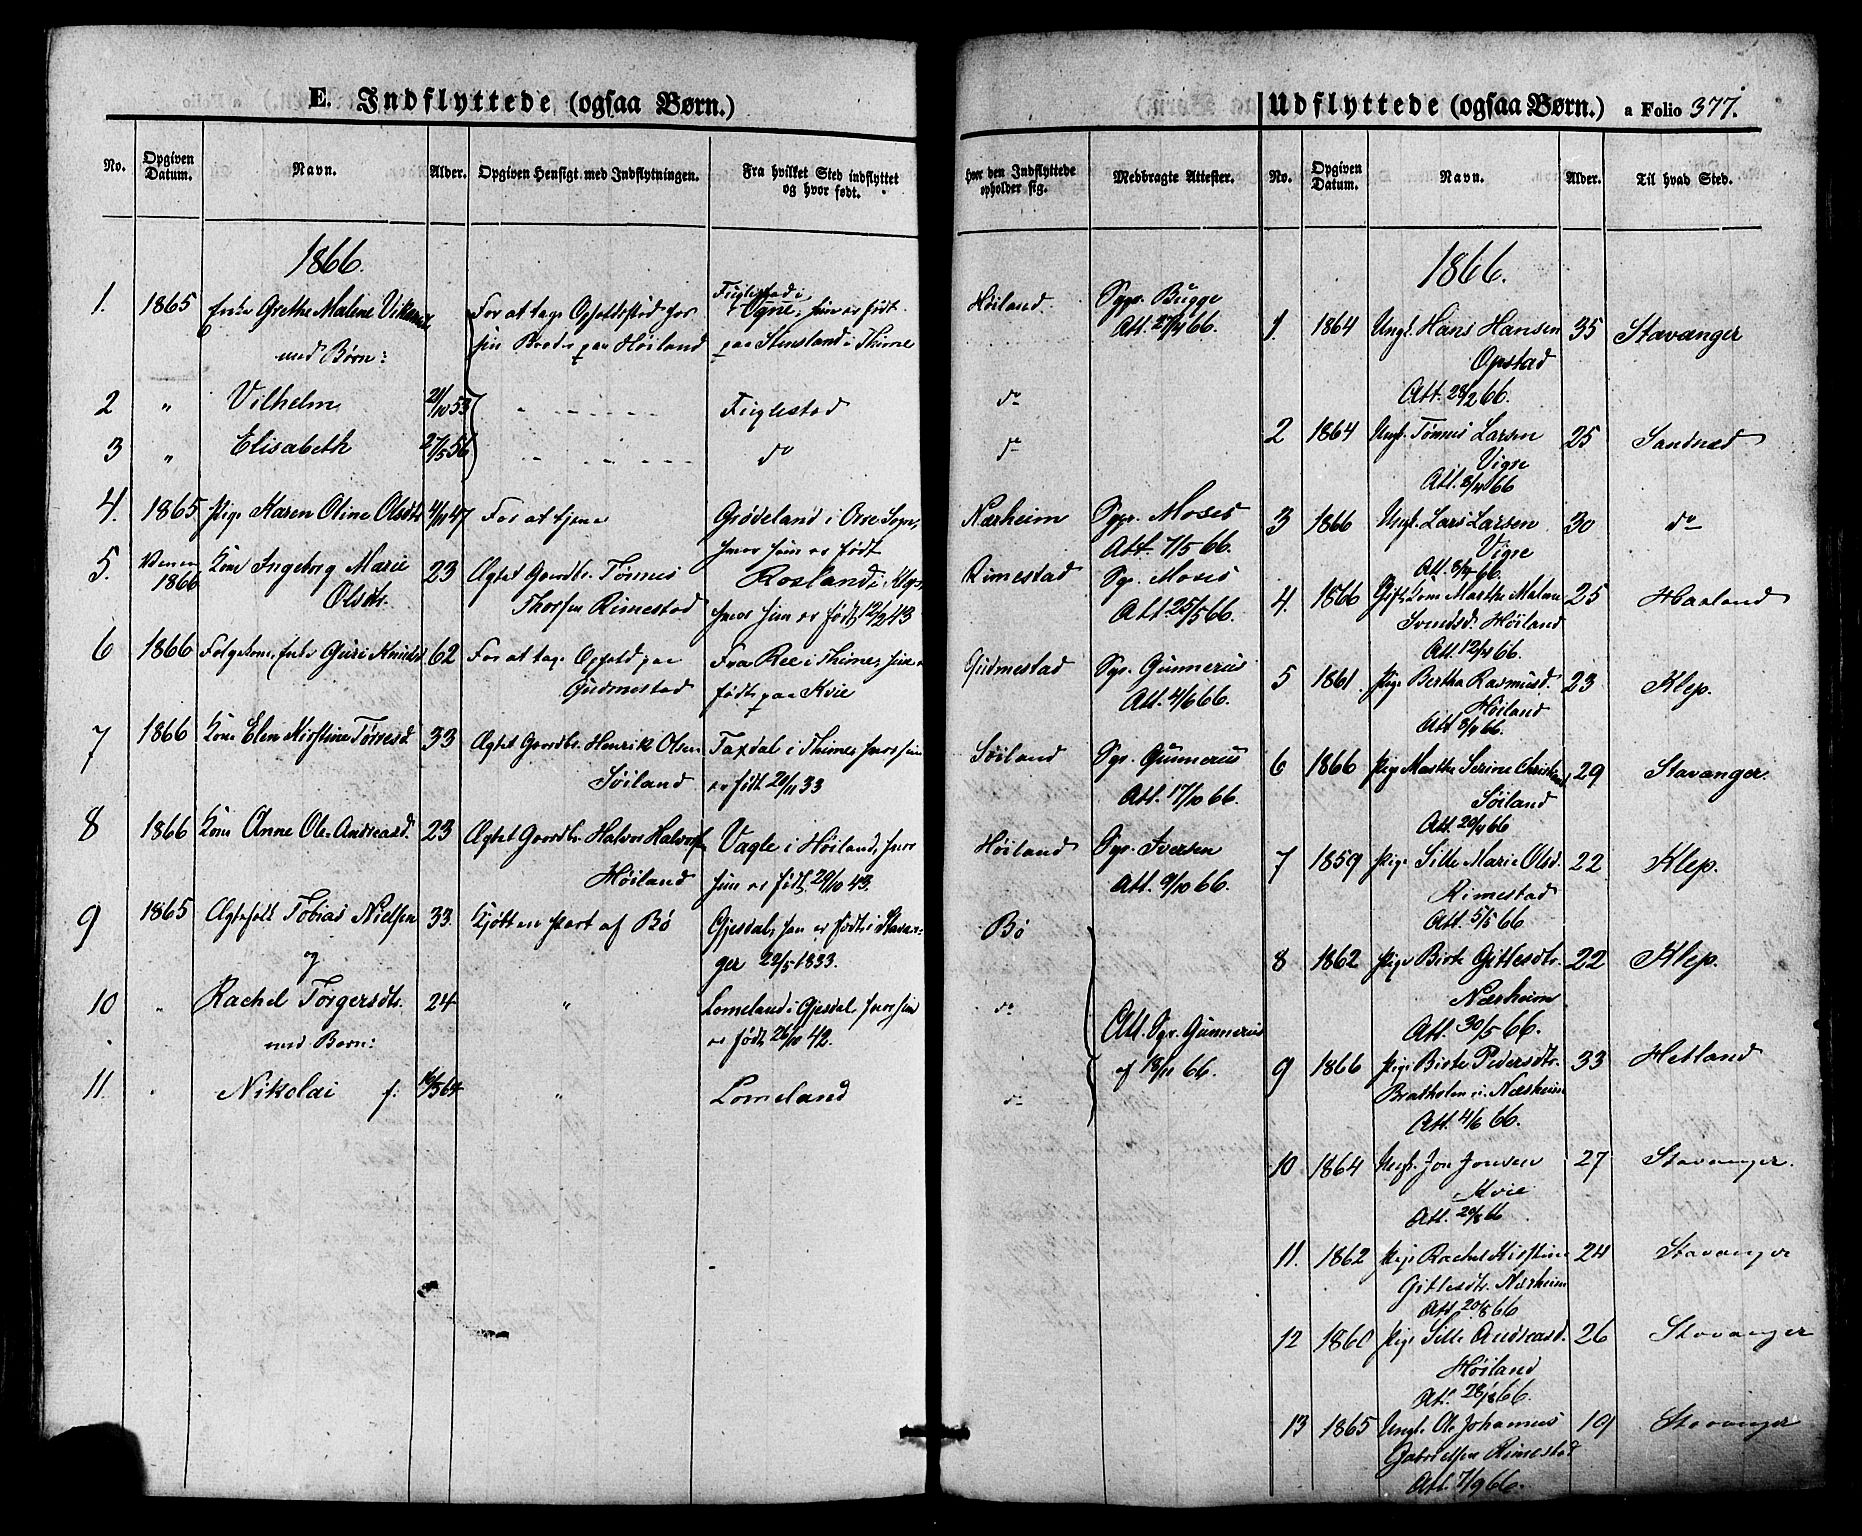 E. Indflyttede (ogsaa Børn.)
No. Opgiven Datum. Navn. Alder. Opgiven Hensigt med Indflytningen. Fra hvilket Sted indflyttet og hvor født. hvor den Indflyttede opholder sig. Medbragte Attester.
1866.
1. 1865 Enke Grethe Malene For at tage Opholdssted hos Fuglestad i Høiland. Sgpr. Bugge
med Børn: sin Broder paa Høiland Ogne, hun er født Att. 27/4 66.
paa Stensland i Thime
2 " Vilhelm 21/10 53 " Fuglestad do
3 " Elisabeth 27/5 56 " do do
4. 1865 Pige Karen Oline Olsdtr 4/11 47 For at tjene Grødeland i Orre Sogn, Nærheim Sgpr. Moses
hvor hun er født Att. 7/5 66.
5. 1866 Kone Ingeborg Marie 23 Ægtet Gaardbr. Tønnes Rosland i Klep, Rimestad Sgpr. Moses
Olsdtr. Thorsen Rimestad hvor hun er født 12/2 43 Att. 25/5 66.
6 1866 Enke Guri Knudsd 62 For at tage Ophold paa Fra Ree i Thime, hun er Gudmestad Sgpr. Gunnerus
Gudmestad født paa Kvie Att. 4/6 66.
7 1866 Kone Elen Kirstine Tørresd 33 Ægtet Gaardbr. Henrik Olsen Taxdal i Thime hvor hun Søiland Sgpr. Gunnerus
Søiland er født 20/11 33 Att. 17/10 66.
8 1866 Kone Anne Ole Andreasd. 23 Ægtet Gaardbr. Halvor Halvorsen Vagle i Høiland, hvor Høiland Sgpr. Iversen
Høiland hun er født 29/10 43. Att. 9/10 66.
9 1865 Ægtefolk Tobias Nielsen 33. Kjøbt en Part af Bø Gjesdal, han er født i Stavan- Bø
og ger 22/5 1833.
10 " Rachel Torgersdtr. 24 " Lomeland i Gjesdal, hvor hun do Att. Sgpr. Gunnerus
med Børn: er født 26/10 42. af 18/11 66.
11. " Nikolai f: 16/5 64 " Lomeland do
Udflyttede (ogsaa Børn.) a Folio 377.
No. Opgiven Datum. Navn. Alder. Til hvad Sted.
1866.
1. 1864 Ungk. Hans Hansen 35 Stavanger
Opstad
Att. 28/2 66.
2 1864 Ungk. Tønnes Larsen 25 Sandnæs
Vigre
Att. 8/4 66
3 1866 Ungk. Lars Larsen 30 do
Vigre
Att. 8/4 66.
4. 1866 Gift Kone Marthe Malene 25 Haaland
Svendsd. Høiland
Att. 12/4 66.
5 1861. Pige Bertha Rasmusd. 23 Klep.
Høiland
Att. 8/4 66.
6 1866 Pige Marthe Serine 29 Stavanger.
Søiland
Att. 20/4 66
7 1859 Pige Sille Marie Olsd. 22 Klep.
Rimestad
Att. 5/5 66
8 1862 Pige Birte Gitlesdtr. 22 Klep.
Nærheim
Att. 30/5 66.
9 1866 Pige Birte Pedersdtr. 33 Hetland
Bratholen u. Nærheim
Att. 4/6 66.
10 1864 Ungk. Jon Jonsen 27 Stavanger.
Kvie
Att. 20/8 66
11. 1862 Pige Rachel Kirstine 24 Stavanger
Gitlesdtr. Nærheim
Att. 20/8 66
12 1860 Pige Sille Andreasd. 26 Stavanger
Høiland
Att. 28/8 66.
13 1865 Ungk. Ole Johannes 19 Stavanger
Gabrielsen Rimestad
Att. 7/9 66.